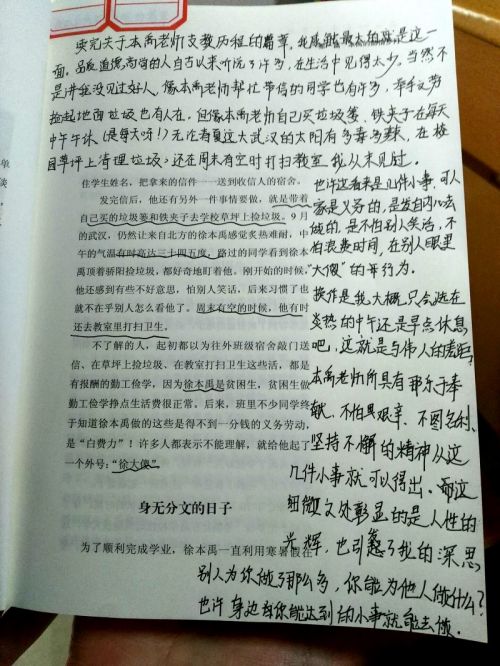 读完关于本禹老师支教历程的篇章，我感触最大的就是这一
面。品质道德高尚的人自古以来听说了许多，在生活中见得太少。当然不
是讲我没见过好人，像本禹老师帮忙带信的同学也有许多，举手之劳
捡起地面垃圾也有人在，但像本禹老师自己买垃圾篓，铁夹子在每天
中午午休（是每天呀！）无论夏这大武汉的太阳有多毒多热，在校
园草坪上清理垃圾，还在周末有空时打扫教室，我从未见过。
住学生姓名，把拿来的信件一一送到收信人的宿舍。
发完信后，他还有另外一件事情要做，就是带着
自己买的垃圾篓和铁夹子去学校草坪上捡垃圾。9月
的武汉，仍然让来自北方的徐本禹感觉炙热难耐，中
午的气温有时高达三十四五度，路过的同学看到徐本
禹顶着骄阳捡垃圾，都好奇地盯着他。刚开始的时候，
他还感到有些不好意思，怕别人笑话，后来习惯了也
就不在乎别人怎么看他了。周末有空的时候，他有时
还去教室里打扫卫生。
不了解的人，起初都以为往外班级宿舍敲门送
信、在草坪上捡垃圾、在教室打扫卫生这些活，都是
有报酬的勤工俭学，因为徐本禹是贫困生，贫困生做
勤工俭学挣点生活费很正常。后来，班里不少同学终
于知道徐本禹做的这些是得不到一分钱的义务劳动，
是“白费力”！许多人都表示不能理解，就给他起了
一个外号：“徐大傻”。
身无分文的日子
为了顺利完成学业，徐本禹一直利用寒暑假在
也许这看来是几件小事，可人
家是义务的，是发自内心去
做的，是不怕别人笑活，不
怕浪费时间，在别人眼里
“大傻”的等行为。
换作是我大概只会选在
炎热的中午还是早点休息
吧，这就是与伟人的差距，
本禹老师所具有那乐于奉
献、不怕艰辛、不图名利、
坚持不懈的精神从这
几件小事就可以得出。而这
细微之处彰显的是人性的
光辉，也引起了我的深思
别人为你做了那么多，你能为他人做什么？
也许身边有你能达到的小事就能去做。